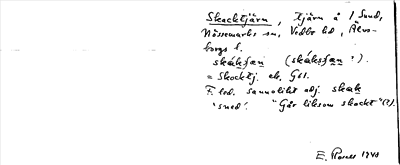 Skacktjärn, tjärn å / Sund,
Nössemarks sn, Vedbo hd, Älvs-
borgs l.
skáksʃan (skáksʃan?).
= Skocktj. ek. GSK.
F. led. sannolikt adj. skak
'sned'. "Går liksom skackt" (?).
E. 1940